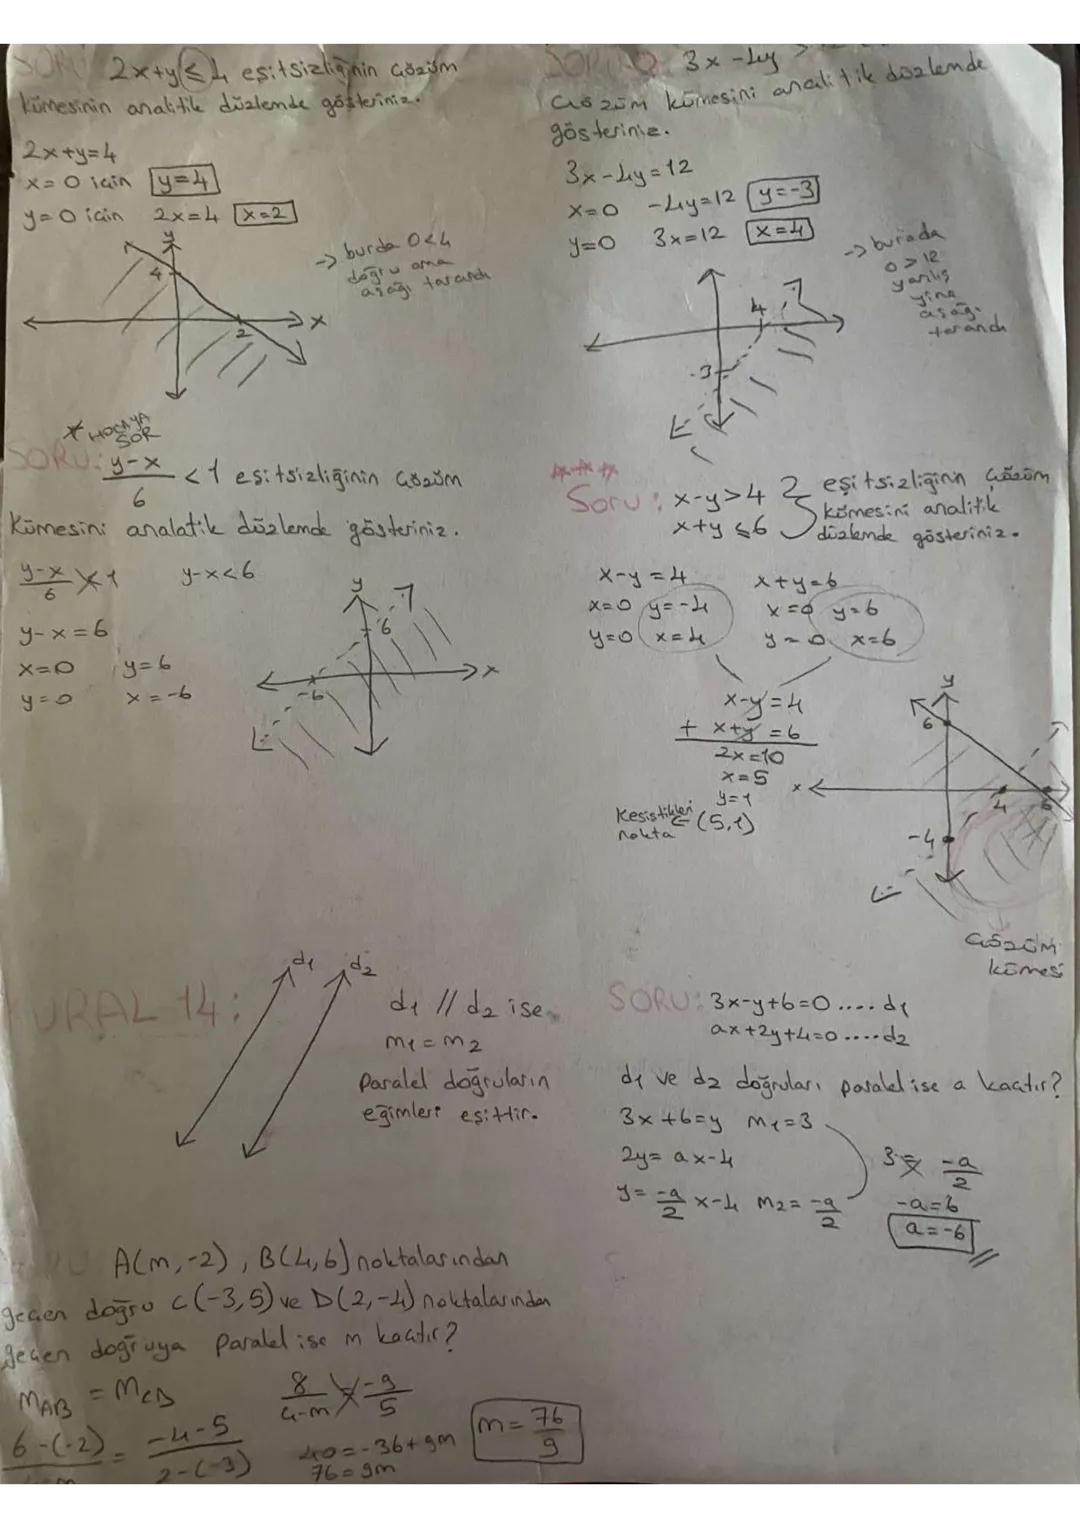 SORU: 2x+y≤4 eşitsizliğinin çözüm
kümesinin analitik düzlemde gösteriniz.
2x+y=4
x=0 için y=4
y=0 için 2x=4 x=2
y
4
2
x
-> burda 0<4
doğru ama
aşağı tarandı
3x-4y >
çözüm kümesini analitik düzlemde
gösteriniz.
3x-4y=12
x=0 -4y=12 y=-3
y=0 3x=12 x=4
4
-3
-> burada
0>12
yanlış
yine
aşağı
tarandı
* HOCAYA
SOR
SORU: y-x/6 <1 eşitsizliğinin çözüm
kümesini analatik düzlemde gösteriniz.
y-x/6 1 y-x<6
y-x=6
x=0 y=6
y=0 x=-6
y
6
-6
x
***
Soru: x-y>4 } eşitsizliğinin çözüm
x+y≤6 kümesini analitik
düzlemde gösteriniz.
x-y=4 x+y=6
x=0 y=-4 x=0 y=6
y=0 x=4 y=0 x=6
x-y=4
+ x+y=6
2x=10
x=5
y=1
Kesistikleri
nokta (5,1)
y
6
x
4
6
-4
çözüm
kümesi
KURAL 14:
d1 d2
d1 // d2 ise
m1=m2
paralel doğruların
eğimleri eşittir.
SORU: 3x-y+6=0....d1
ax+2y+4=0....d2
d1 ve d2 doğruları paralel ise a kaçtır?
3x+6=y m1=3
2y= ax-4
y= -a/2 x-4 m2= -a/2
3= -a/2
-a=6
a=-6
SORU A(m,-2), B(4,6) noktalarından
geçen doğru C(-3,5) ve D(2,-4) noktalarından
geçen doğruya paralel ise m kaçtır?
mAB = mCD
6-(-2)/4-m = -4-5/2-(-3)
8/4-m -9/5
40=-36+9m
76=9m
m= 76/9